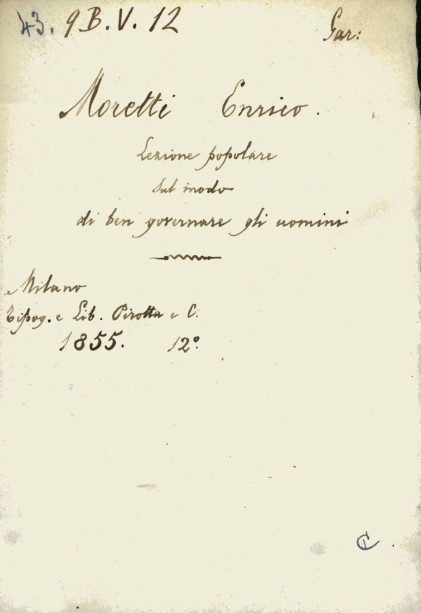 43. 9 B. V. 12 Gar:
Moretti Enrico.
Lezione popolare
sul modo
di ben governare gli uomini
Milano
Tipog. e Lib. Pirotta e C.
1855. 12°.